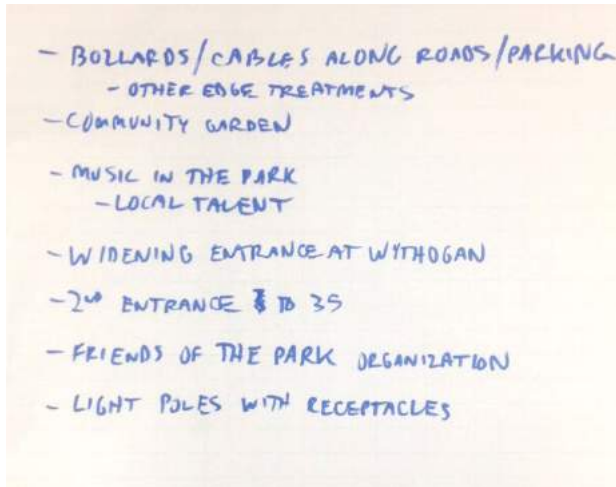 - BOLLARDS/CABLES ALONG ROADS/PARKING
- OTHER EDGE TREATMENTS
- COMMUNITY GARDEN
- MUSIC IN THE PARK
- LOCAL TALENT
- WIDENING ENTRANCE AT WYTHOGAN
- 2ND ENTRANCE TO 35
- FRIENDS OF THE PARK ORGANIZATION
- LIGHT POLES WITH RECEPTACLES